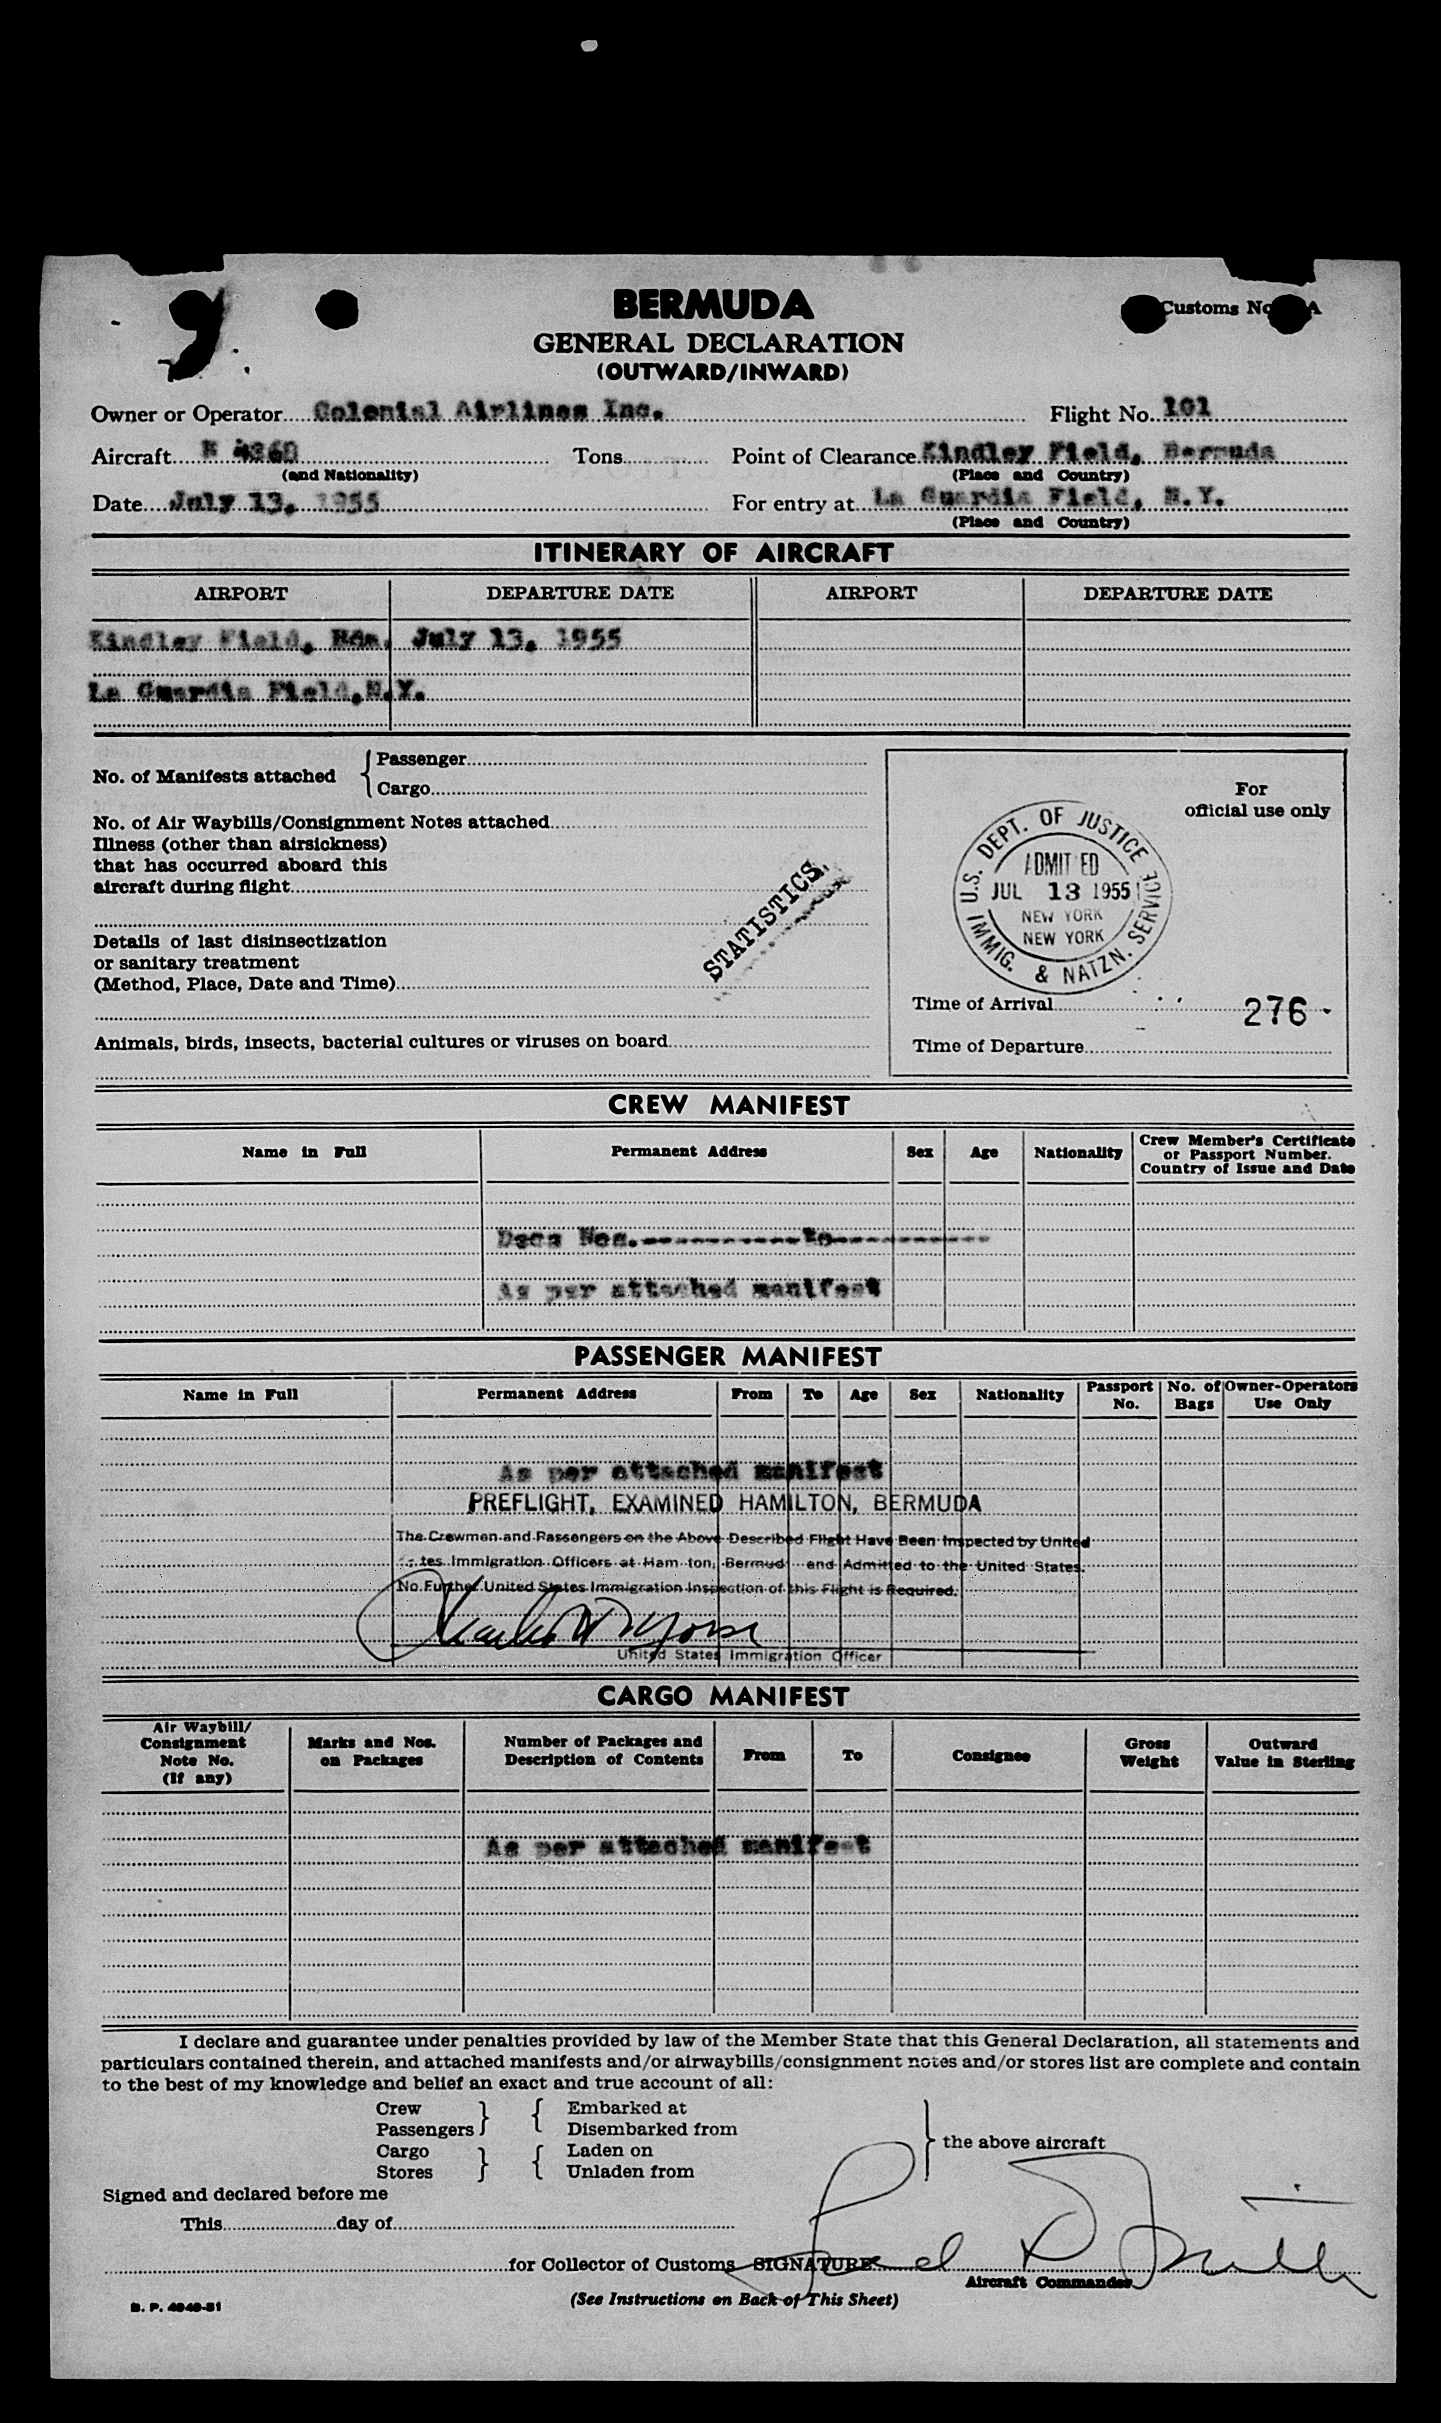 BERMUDA
Customs No. A
GENERAL DECLARATION
(OUTWARD/INWARD)
Owner or Operator Colonial Airlines Inc. Flight No. 101
Aircraft N Tons Point of Clearance Kindley Field, Bermuda
(and Nationality) (Place and Country)
Date July 13, 1955 For entry at La Guardia Field, N.Y.
(Place and Country)
ITINERARY OF AIRCRAFT
AIRPORT DEPARTURE DATE AIRPORT DEPARTURE DATE
Kindley Field, Bda. July 13, 1955
La Guardia Field, N.Y.
No. of Manifests attached { Passenger
Cargo
No. of Air Waybills/Consignment Notes attached
Illness (other than airsickness)
that has occurred aboard this
aircraft during flight
STATISTICS
Details of last disinsectization
or sanitary treatment
(Method, Place, Date and Time)
Animals, birds, insects, bacterial cultures or viruses on board
For
official use only
U.S. DEPT. OF JUSTICE
ADMITTED
JUL 13 1955
NEW YORK
NEW YORK
IMMIG. & NATZN. SERVICE
Time of Arrival 276
Time of Departure
CREW MANIFEST
Name in Full Permanent Address Sex Age Nationality Crew Member's Certificate
or Passport Number.
Country of Issue and Date
Decs Nos.------------to------------
As per attached manifest
PASSENGER MANIFEST
Name in Full Permanent Address From To Age Sex Nationality Passport No. No. of Bags Owner-Operators Use Only
As per attached manifest
PREFLIGHT, EXAMINED HAMILTON, BERMUDA
The Crewmen and Passengers on the Above Described Flight Have Been Inspected by United
States Immigration Officers at Hamilton, Bermuda and Admitted to the United States.
No Further United States Immigration Inspection of this Flight is Required.
United States Immigration Officer
CARGO MANIFEST
Air Waybill/
Consignment
Note No.
(If any)
Marks and Nos.
on Packages
Number of Packages and
Description of Contents
From To Consignee
Gross
Weight
Outward
Value in Sterling
As per attached manifest
I declare and guarantee under penalties provided by law of the Member State that this General Declaration, all statements and
particulars contained therein, and attached manifests and/or airwaybills/consignment notes and/or stores list are complete and contain
to the best of my knowledge and belief an exact and true account of all:
Crew } { Embarked at
Passengers Disembarked from
Cargo } { Laden on
Stores Unladen from
} the above aircraft
Signed and declared before me
This day of
for Collector of Customs SIGNATURE
Aircraft Commander
(See Instructions on Back of This Sheet)
B. P. 4949-51